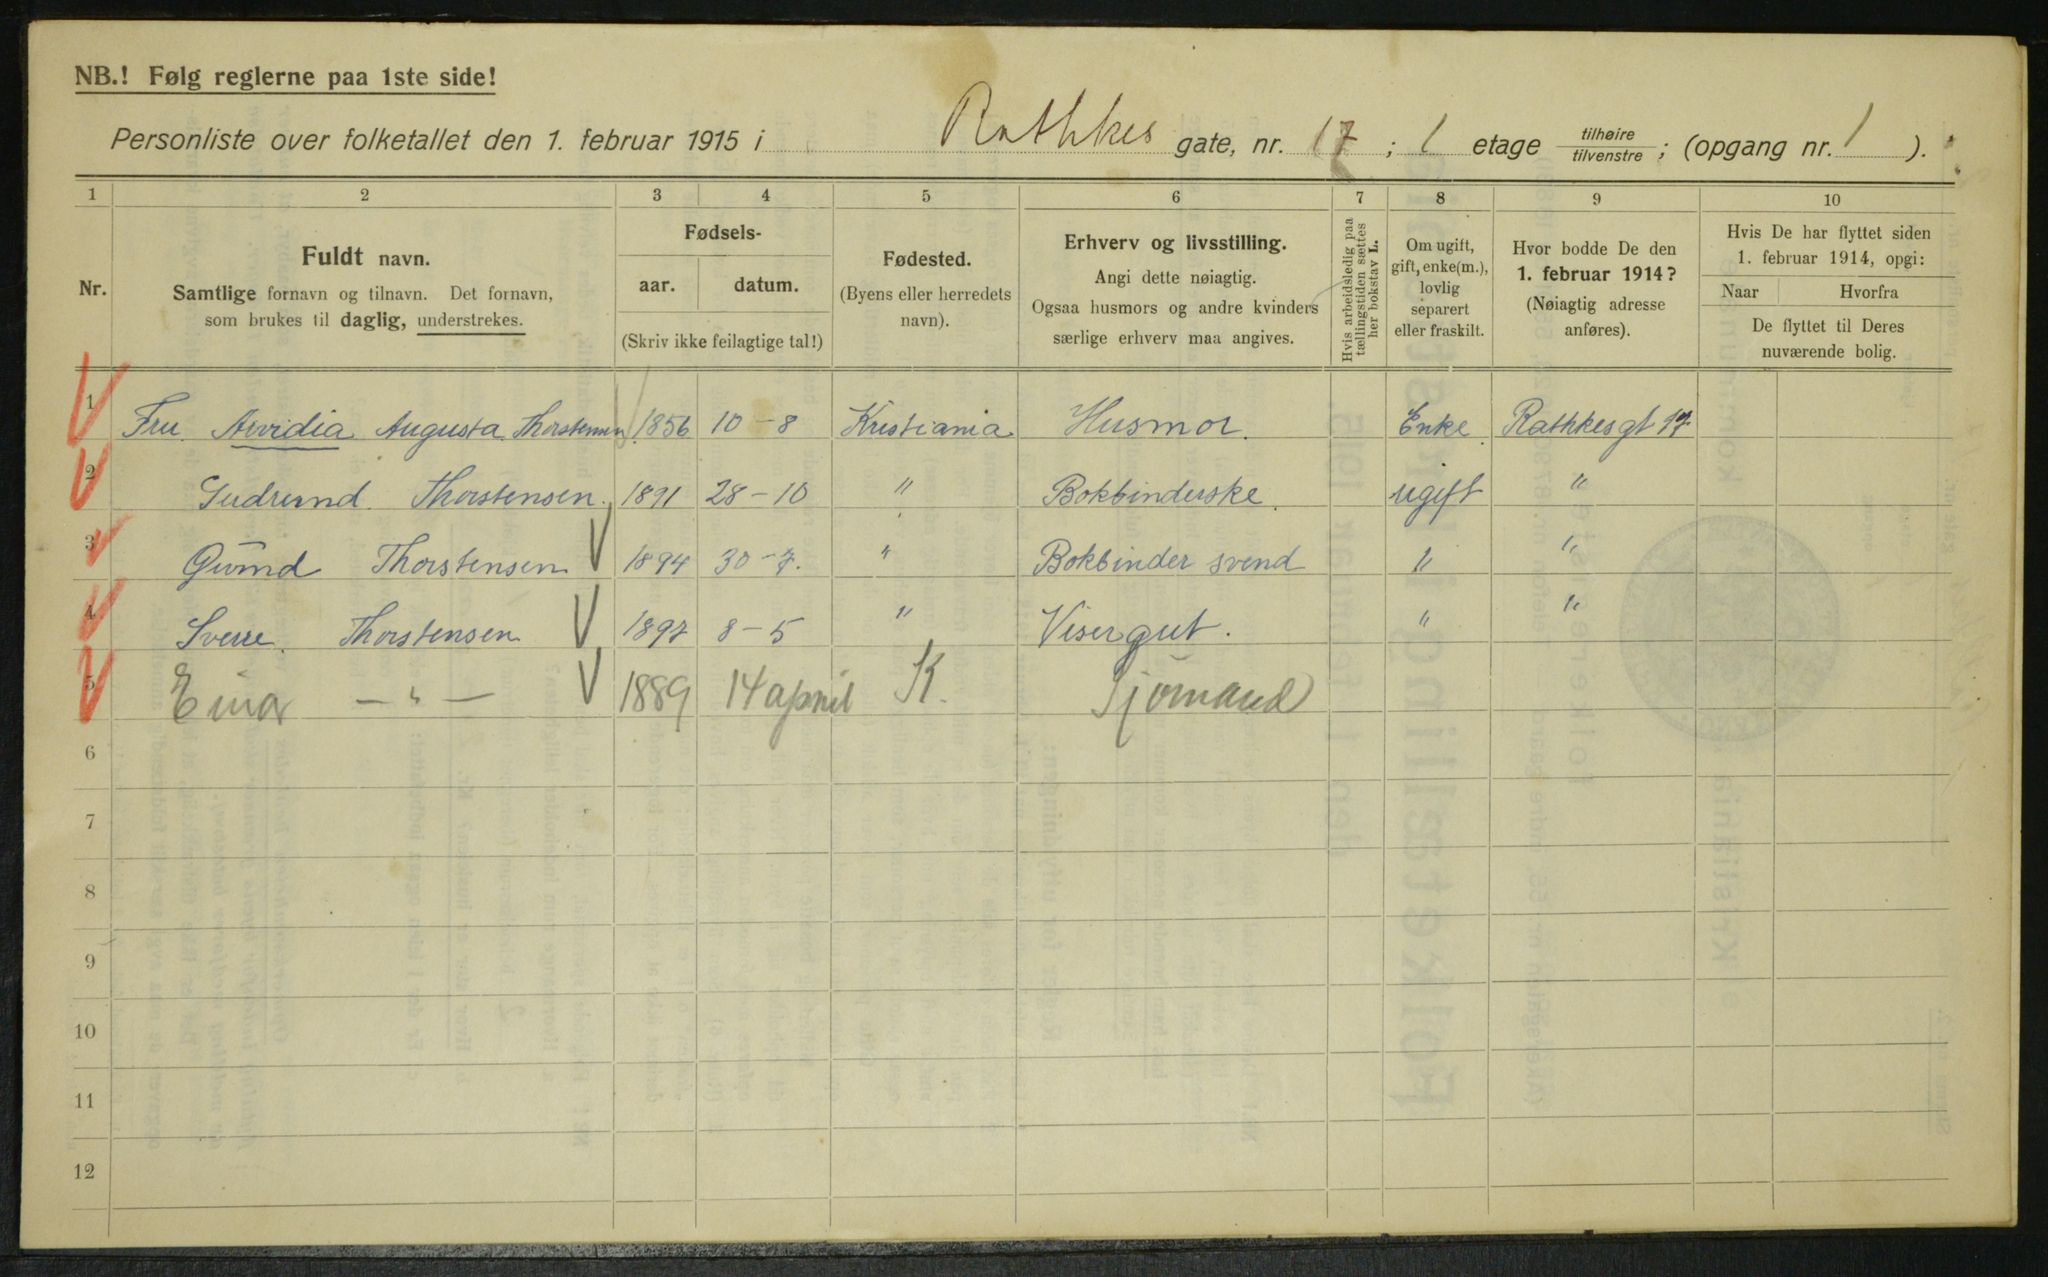 NB.! Følg reglerne paa 1ste side!
Personliste over folketallet den 1. februar 1915 i Rathkes gate, nr. 17; 1 etage tilhøire / tilvenstre; (opgang nr. 1).
1 2 3 4 5 6 7 8 9 10
Nr.
Fuldt navn.
Samtlige fornavn og tilnavn. Det fornavn,
som brukes til daglig, understrekes.
Fødsels-
aar. datum.
(Skriv ikke feilagtige tal!)
Fødested.
(Byens eller herredets
navn).
Erhverv og livsstilling.
Angi dette nøiagtig.
Ogsaa husmors og andre kvinders
særlige erhverv maa angives.
Hvis arbeidsledig paa
tællingstiden sættes
her bokstav L.
Om ugift,
gift, enke(m.),
lovlig
separert
eller fraskilt.
Hvor bodde De den
1. februar 1914?
(Nøiagtig adresse
anføres).
Hvis De har flyttet siden
1. februar 1914, opgi:
Naar Hvorfra
De flyttet til Deres
nuværende bolig.
1 Fru Arvidia Augusta Thorstensen 1856 10-8 Kristiania Husmor. Enke Rathkesgt 17.
2 Gudrund. Thorstensen. 1891 28-10 " Bokbinderske. ugift "
3 Thorstensen 1894 30-7. " Bokbinder svend " "
4 Sverre. Thorstensen 1897 8-5 " Visergut. " "
5 Einar — " — 1889 14 april K. Sjömand
6
7
8
9
10
11
12